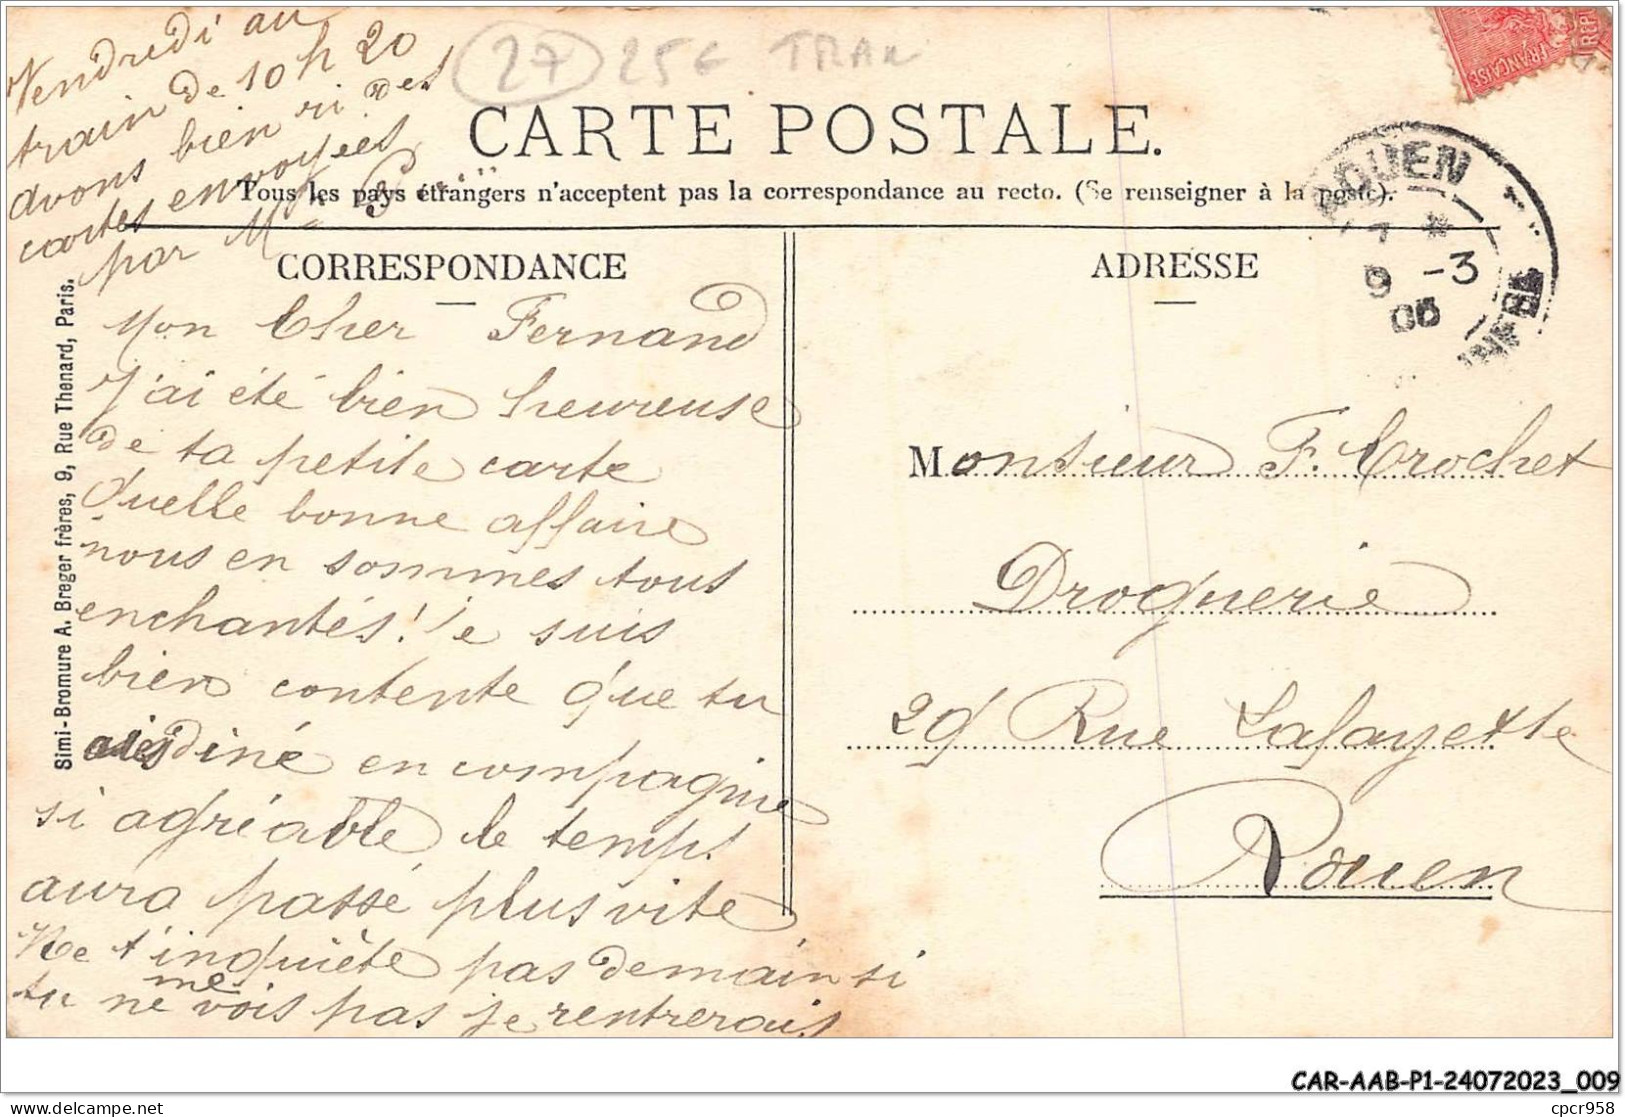 Vendredi au
train de 10 h 20
avons bien ri des
cartes envoyées
par M
27 25€ TRAN
CARTE POSTALE.
Tous les pays étrangers n'acceptent pas la correspondance au recto. (Se renseigner à la poste).
CORRESPONDANCE
Mon Cher Fernand
J'ai été bien heureuse
de ta petite carte
Quelle bonne affaire
nous en sommes tous
enchantés! Je suis
bien contente que tu
aies diné en compagnie
si agréable le temps
aura passé plus vite
Ne t'inquiète pas demain si
tu ne me vois pas je rentrerais
Simi-Bromure A. Breger frères, 9, Rue Thenard, Paris.
ADRESSE
Monsieur F. Crochet
Droguerie
29 Rue Lafayette
Rouen
FRANÇAISE
ROUEN
9 -3
06
CAR-AAB-P1-24072023_009
cpcr958